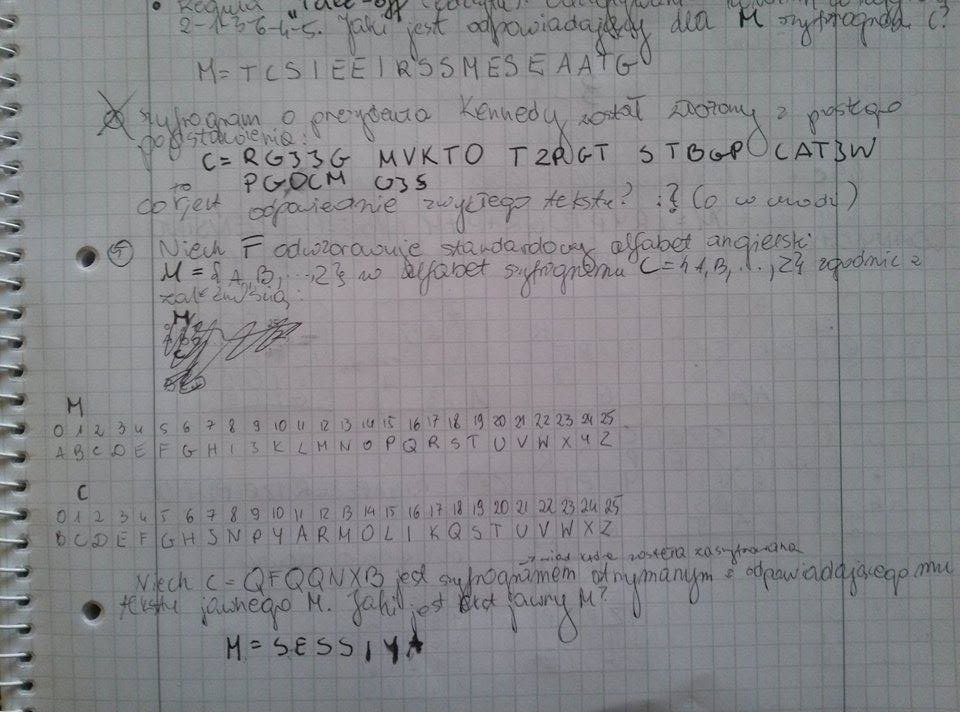 • Reguła "Take-off"
2-1-3-6-4-5. Jaki jest odpowiadający dla M szyfrogram C?
M = T C S I E E I R S S M E S E A A T G
szyfrogram o prezydencie Kennedy został złożony z prostego
podstawienia:
C = RG33G MVKTO TZPGT STBGP CAT3W
PGOCM G3S
co to jest odpowiednie zwykłego tekstu? :} (o co w chodzi)
5 Niech F odwzorowuje standardowy alfabet angielski
M = {A, B, ..., Z} w alfabet szyfrogramu C = {A, B, ..., Z} zgodnie z
zależnością:
M
M
0 1 2 3 4 5 6 7 8 9 10 11 12 13 14 15 16 17 18 19 20 21 22 23 24 25
A B C D E F G H I J K L M N O P Q R S T U V W X Y Z
C
0 1 2 3 4 5 6 7 8 9 10 11 12 13 14 15 16 17 18 19 20 21 22 23 24 25
B C D E F G H S N P Y A R M O L I K Q S T U V W X Z
która została zaszyfrowana
Niech C = QFQQNXB jest szyfrogramem otrzymanym z odpowiadającego mu
tekstu jawnego M. Jaki jest tekst jawny M?
M = S E S S I Y A